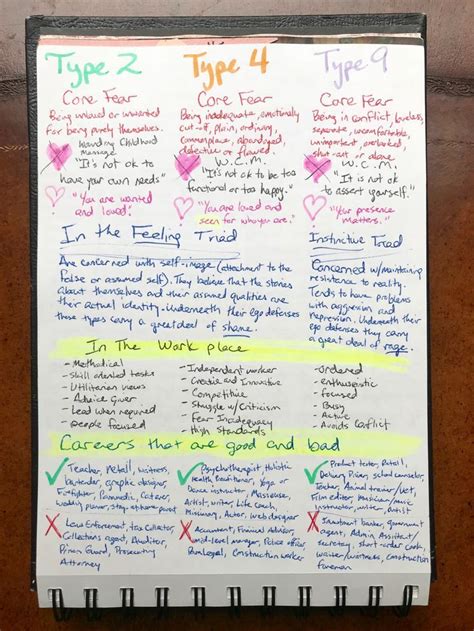 Type 2
Core Fear
Being unloved or unwanted
for being purely themselves.
Wounding Childhood
Message
"It's not ok to
have your own needs"
"You are wanted
and loved."
Type 4
Core Fear
Being inadequate, emotionally
cut-off, plain, ordinary,
commonplace, abandoned,
defective or flawed.
W.C.M.
"It's not ok to be too
functional or too happy."
"You are loved and
seen for who you are."
Type 9
Core Fear
Being in conflict, loveless,
separate, uncomfortable,
unimportant, overlooked,
shut-out or alone.
W.C.M.
"It is not ok to
assert yourself."
"Your presence
matters."
In the Feeling Triad
Are concerned with self-image (attachment to the
false or assumed self). They believe that the stories
about themselves and their assumed qualities are
their actual identity. Underneath their ego defenses
these types carry a great deal of shame.
Instinctive Triad
Concerned w/maintaining
resistance to reality.
Tends to have problems
with aggression and
repression. Underneath their
ego defenses they carry
a great deal of rage.
In The Work place
- Methodical
- Skill oriented tasks
- Utilitarian views
- Advice Giver
- Lead when required
- people focused
- Independent worker
- Creative and Innovative
- Competitive
- Struggle w/Criticism
- Fear-Inadequacy
- High Standards
- ordered
- Enthusiastic
- focused
- Busy
- Active
- Avoids Conflict
Careers that are good and bad
Teacher, Retail, waitress,
bartender, graphic designer,
Firefighter, Paramedic, Caterer,
wedding planner, stay at home parent
Psychotherapist, Holistic
Health Practitioner, Yoga or
Dance instructor, Masseuse,
Artist, writer, Life Coach,
Missionary, Actor, web designer
Product tester, Retail,
Delivery Driver, school counselor,
Teacher, Animal trainer/Vet,
Film editor, musician/music
instructor, writer, artist
Law Enforcement, Tax Collector,
Collections agent, Auditor,
Prison Guard, Prosecuting
Attorney
Accountant, Financial Advisor,
mid-level manager, Police officer,
Paralegal, Construction worker
Investment banker, government
agent, Admin Assistant/
secretary, short-order cook,
waiter/waitress, Construction
foreman